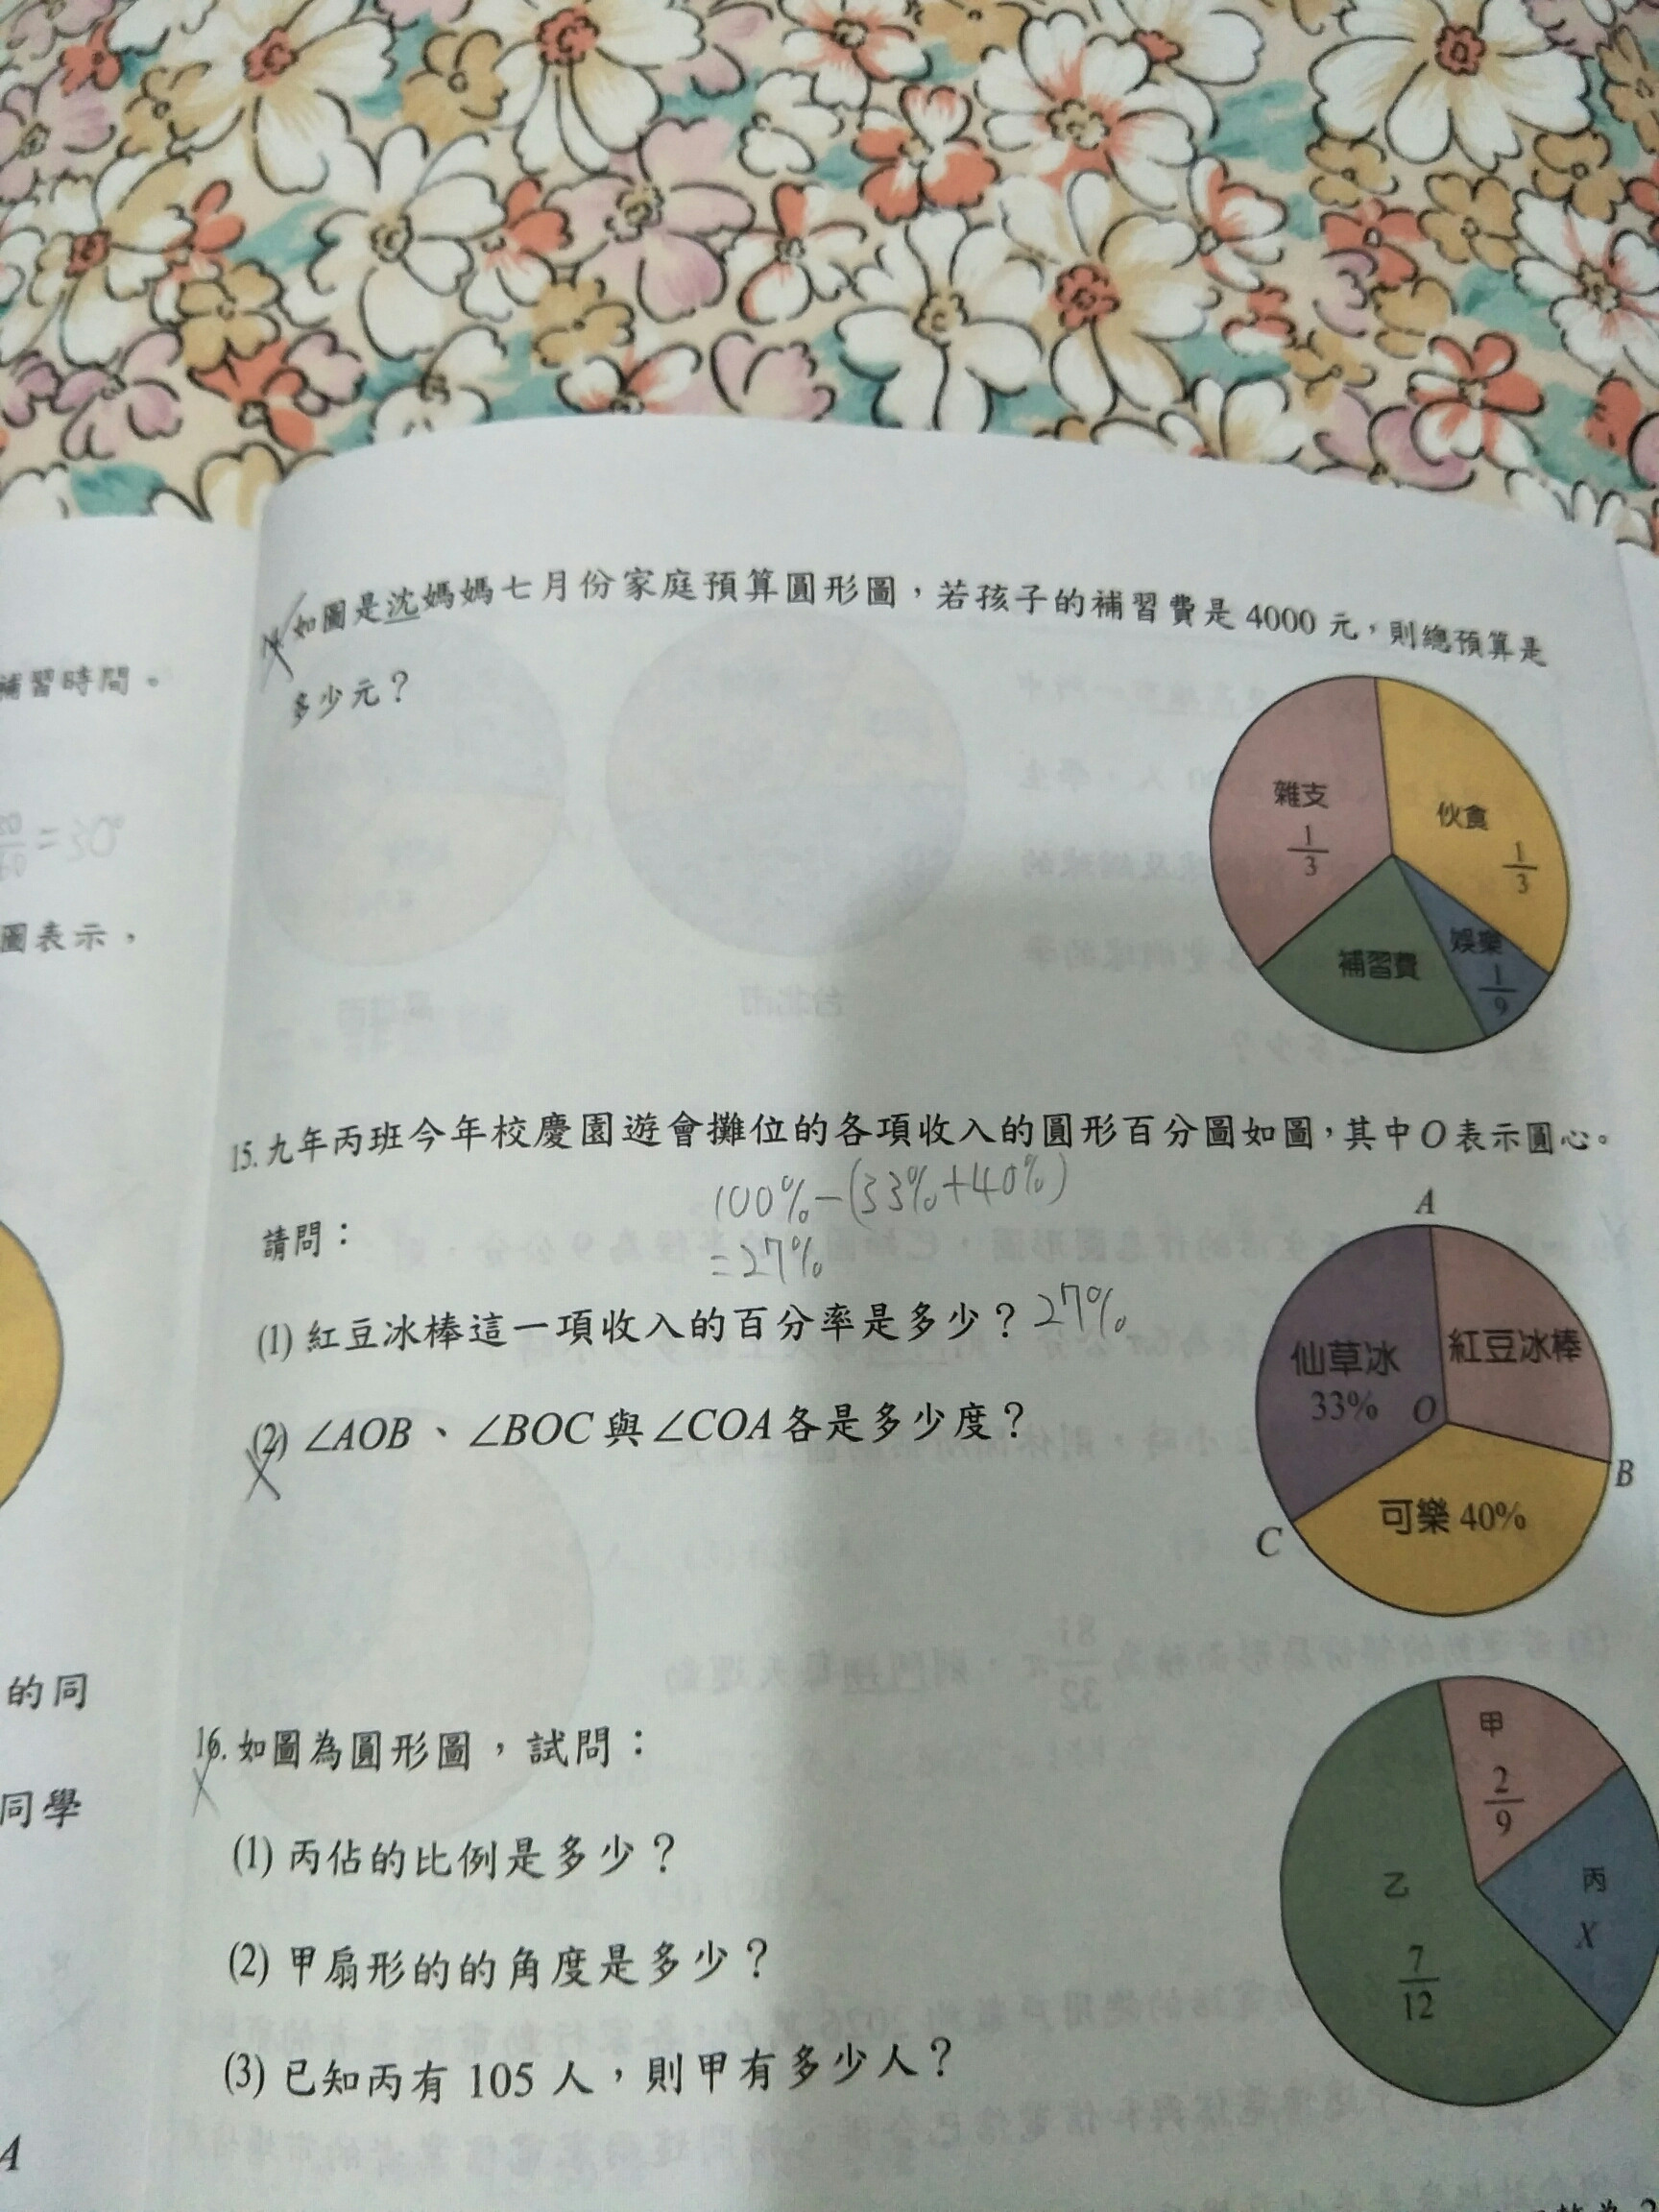 如圖是沈媽媽七月份家庭預算圓形圖，若孩子的補習費是 4000 元，則總預算是
多少元？
雜支
1/3
伙食
1/3
補習費
娛樂
1/9
15. 九年丙班今年校慶園遊會攤位的各項收入的圓形百分圖如圖，其中O表示圓心。
100%-(33%+40%)
請問：
=27%
(1) 紅豆冰棒這一項收入的百分率是多少？27%
(2) ∠AOB、∠BOC 與 ∠COA 各是多少度？
A
仙草冰
33%
紅豆冰棒
O
B
可樂 40%
C
16. 如圖為圓形圖，試問：
(1) 丙佔的比例是多少？
(2) 甲扇形的的角度是多少？
(3) 已知丙有 105 人，則甲有多少人？
甲
2/9
乙
7/12
丙
X
補習時間。
圖表示，
的同
同學
A